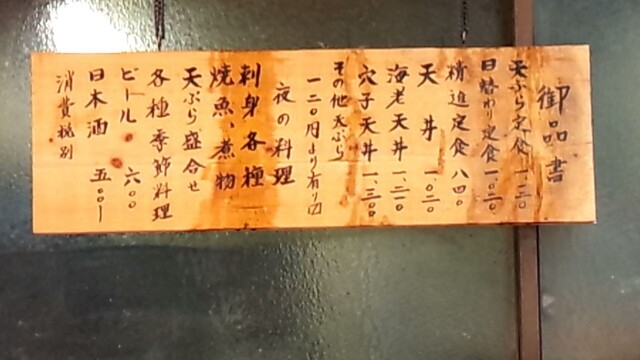 御品書
天ぷら定食 一、一二〇
日替わり定食 一、〇二〇
精進定食 八四〇
天丼 一、〇二〇
海老天丼 一、二一〇
穴子天丼 一、三〇〇
その他天ぷら
一二〇円より有り〼
夜の料理
刺身各種
焼魚、煮物
天ぷら盛合せ
各種季節料理
ビール 六〇〇
日本酒 五〇〇ー
消費税別